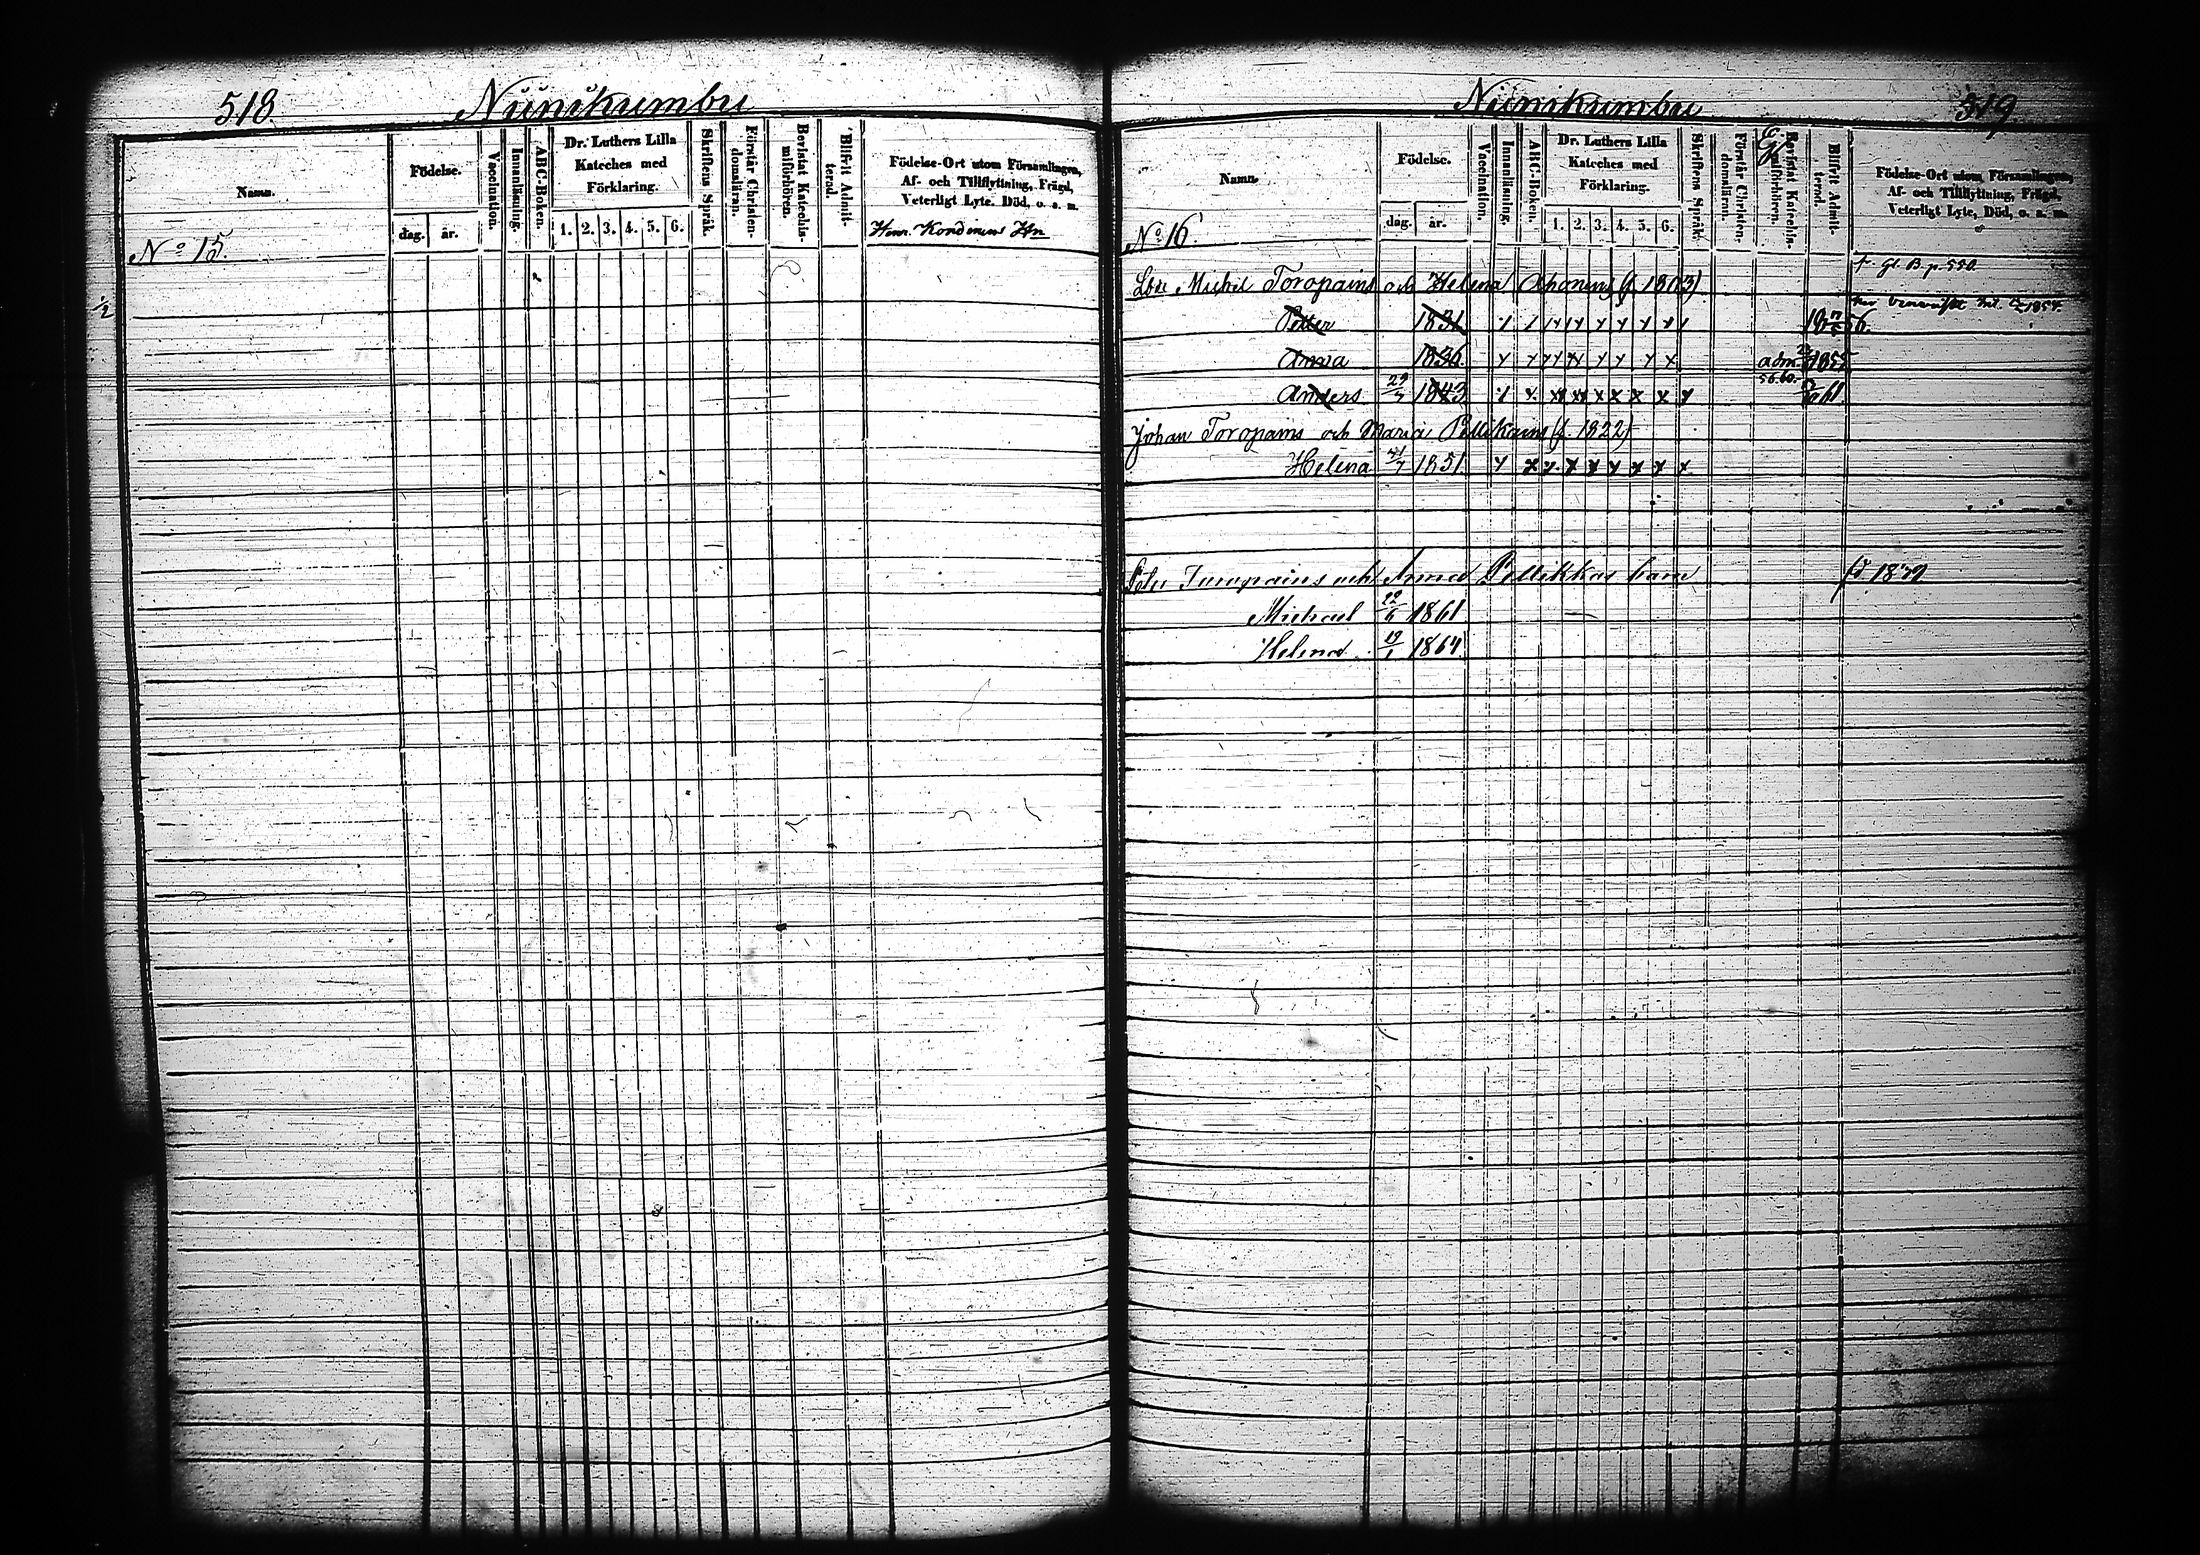 518.
Niinikumbu
Namn.
Födelse.
dag.
år.
Vaccination.
Innanläsning.
ABC-Boken.
Dr. Luthers Lilla
Kateches med
Förklaring.
1. 2. 3. 4. 5. 6.
Skriftens Språk.
Förstår Christen-
domsläran.
Bevistat Katechis-
miförhören.
Blifvit Admit-
terad.
Födelse-Ort utom Församlingen,
Af- och Tillflyttning, Frägd,
Veterligt Lyte, Död, o. s. m.
No 15.
1/2
Niinikumbu
519
Namn.
Födelse.
dag.
år.
Vaccination.
Innanläsning.
ABC-Boken.
Dr. Luthers Lilla
Kateches med
Förklaring.
1. 2. 3. 4. 5. 6.
Skriftens Språk.
Förstår Christen-
domsläran.
Bevistat Katechis-
miförhören.
Blifvit Admit-
terad.
Födelse-Ort utom Församlingen,
Af- och Tillflyttning, Frägd,
Veterligt Lyte, Död, o. s. m.
No 16.
Michel Toropains och Helena (f. 1803) gl. B. p. 550.
Petter 1831
Anna 1836 adm. 1855
Anders 1843 56. 60. 61
Johan Toropains och Maria Pellikains (f. 1822)
Helena 1851
Toropains och Anna Pellikkas barn
Michael 1861
Helena 19/1 1864